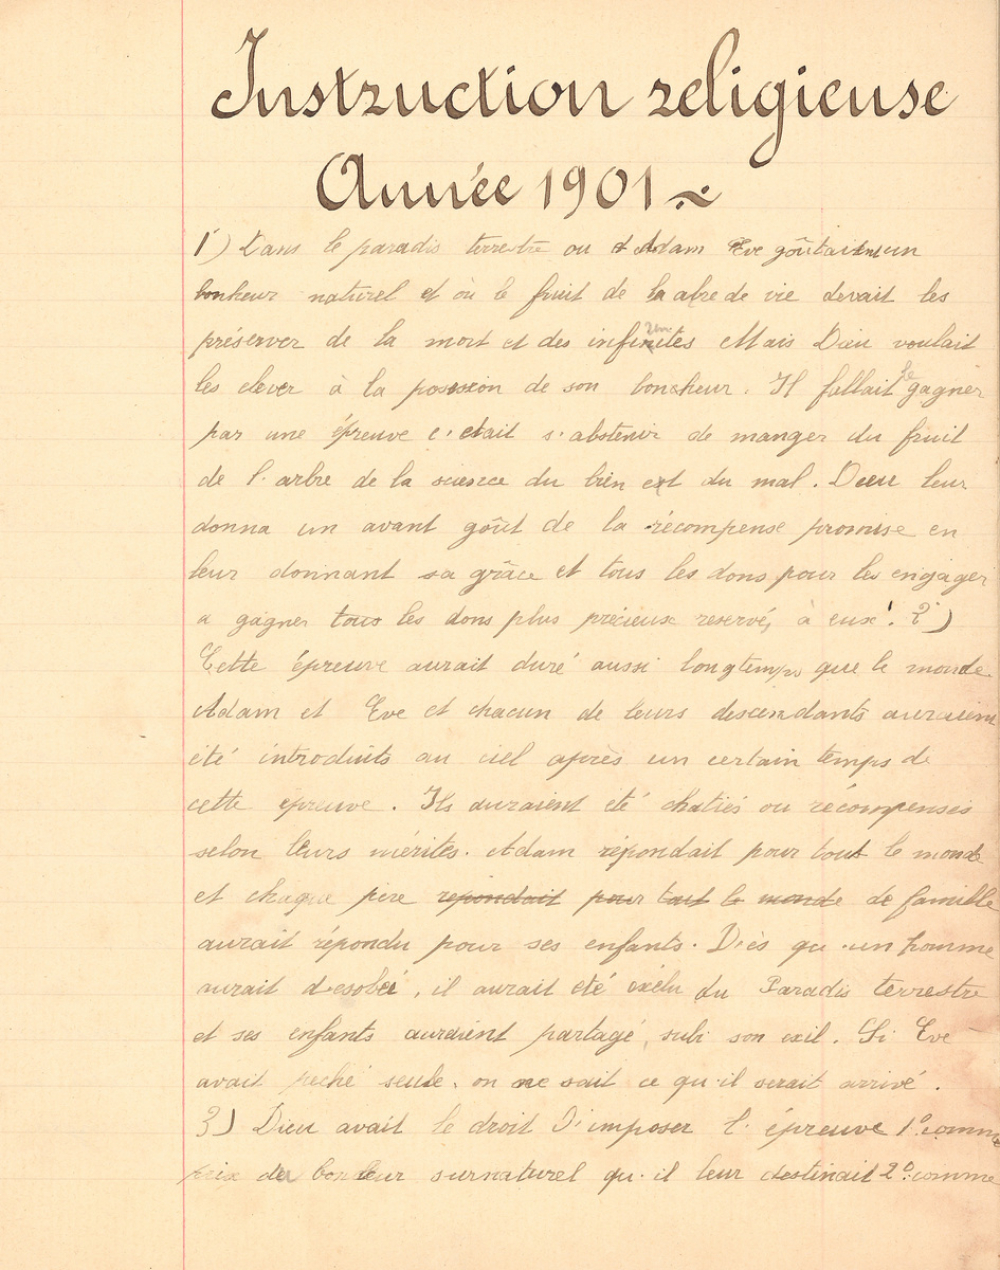 Instruction religieuse
Année 1901
1°) Dans le paradis terrestre ou Adam Eve goûtaient un
bonheur naturel et où le fruit de la abre de vie devait les
préserver de la mort et des infirmités Mais Dieu voulait
les elever à la posession de son bonheur. Il fallait le gagner
par une épreuve c'etait s'abstenir de manger du fruit
de l'arbre de la science du bien et du mal. Dieu leur
donna un avant goût de la récompense promise en
leur donnant sa grâce et tous les dons pour les engager
a gagner tous les dons plus précieux reservés à eux'. 2°)
Cette épreuve aurait duré aussi longtemps que le monde
Adam et Eve et chacun de leurs descendants auraient
été introduits au ciel après un certain temps de
cette epreuve. Ils auraient été chatiés ou récompensés
selon leurs mérites. Adam répondait pour tout le monde
et chaque père repondait pour tout le monde de famille
aurait répondu pour ses enfants. Dès qu'un homme
aurait desobéi, il aurait eté exclu du Paradis terrestre
et ses enfants auraient partagé, subi son exil. Si Eve
avait peché seule, on ne sait ce qu'il serait arrivé.
3) Dieu avait le droit d'imposer l'épreuve 1° comme
prix du bonheur surnaturel qu'il leur destinait 2° comme